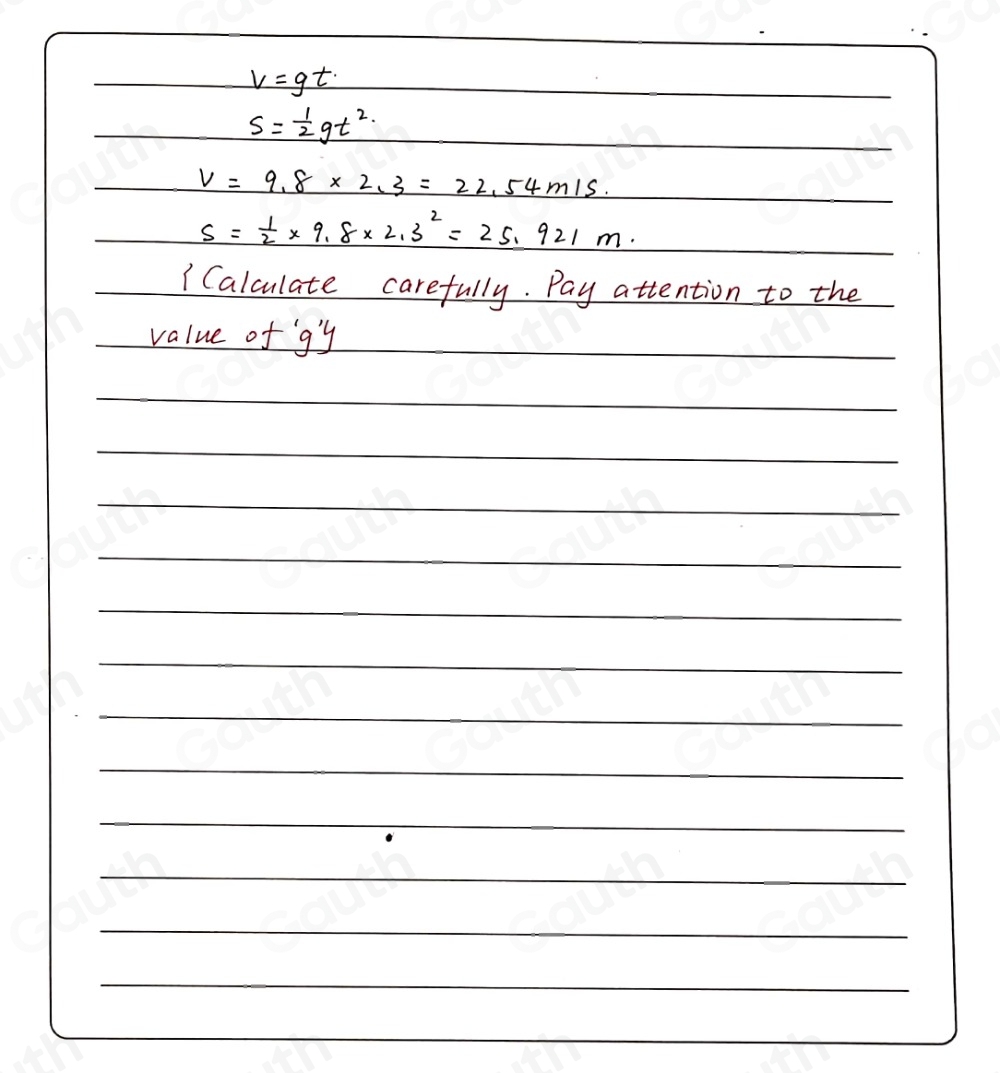 v = gt.
s = ½gt².
v = 9.8 × 2.3 = 22.54 m/s.
s = ½ × 9.8 × 2.3² = 25.921 m.
{Calculate carefully. Pay attention to the
value of 'g'}